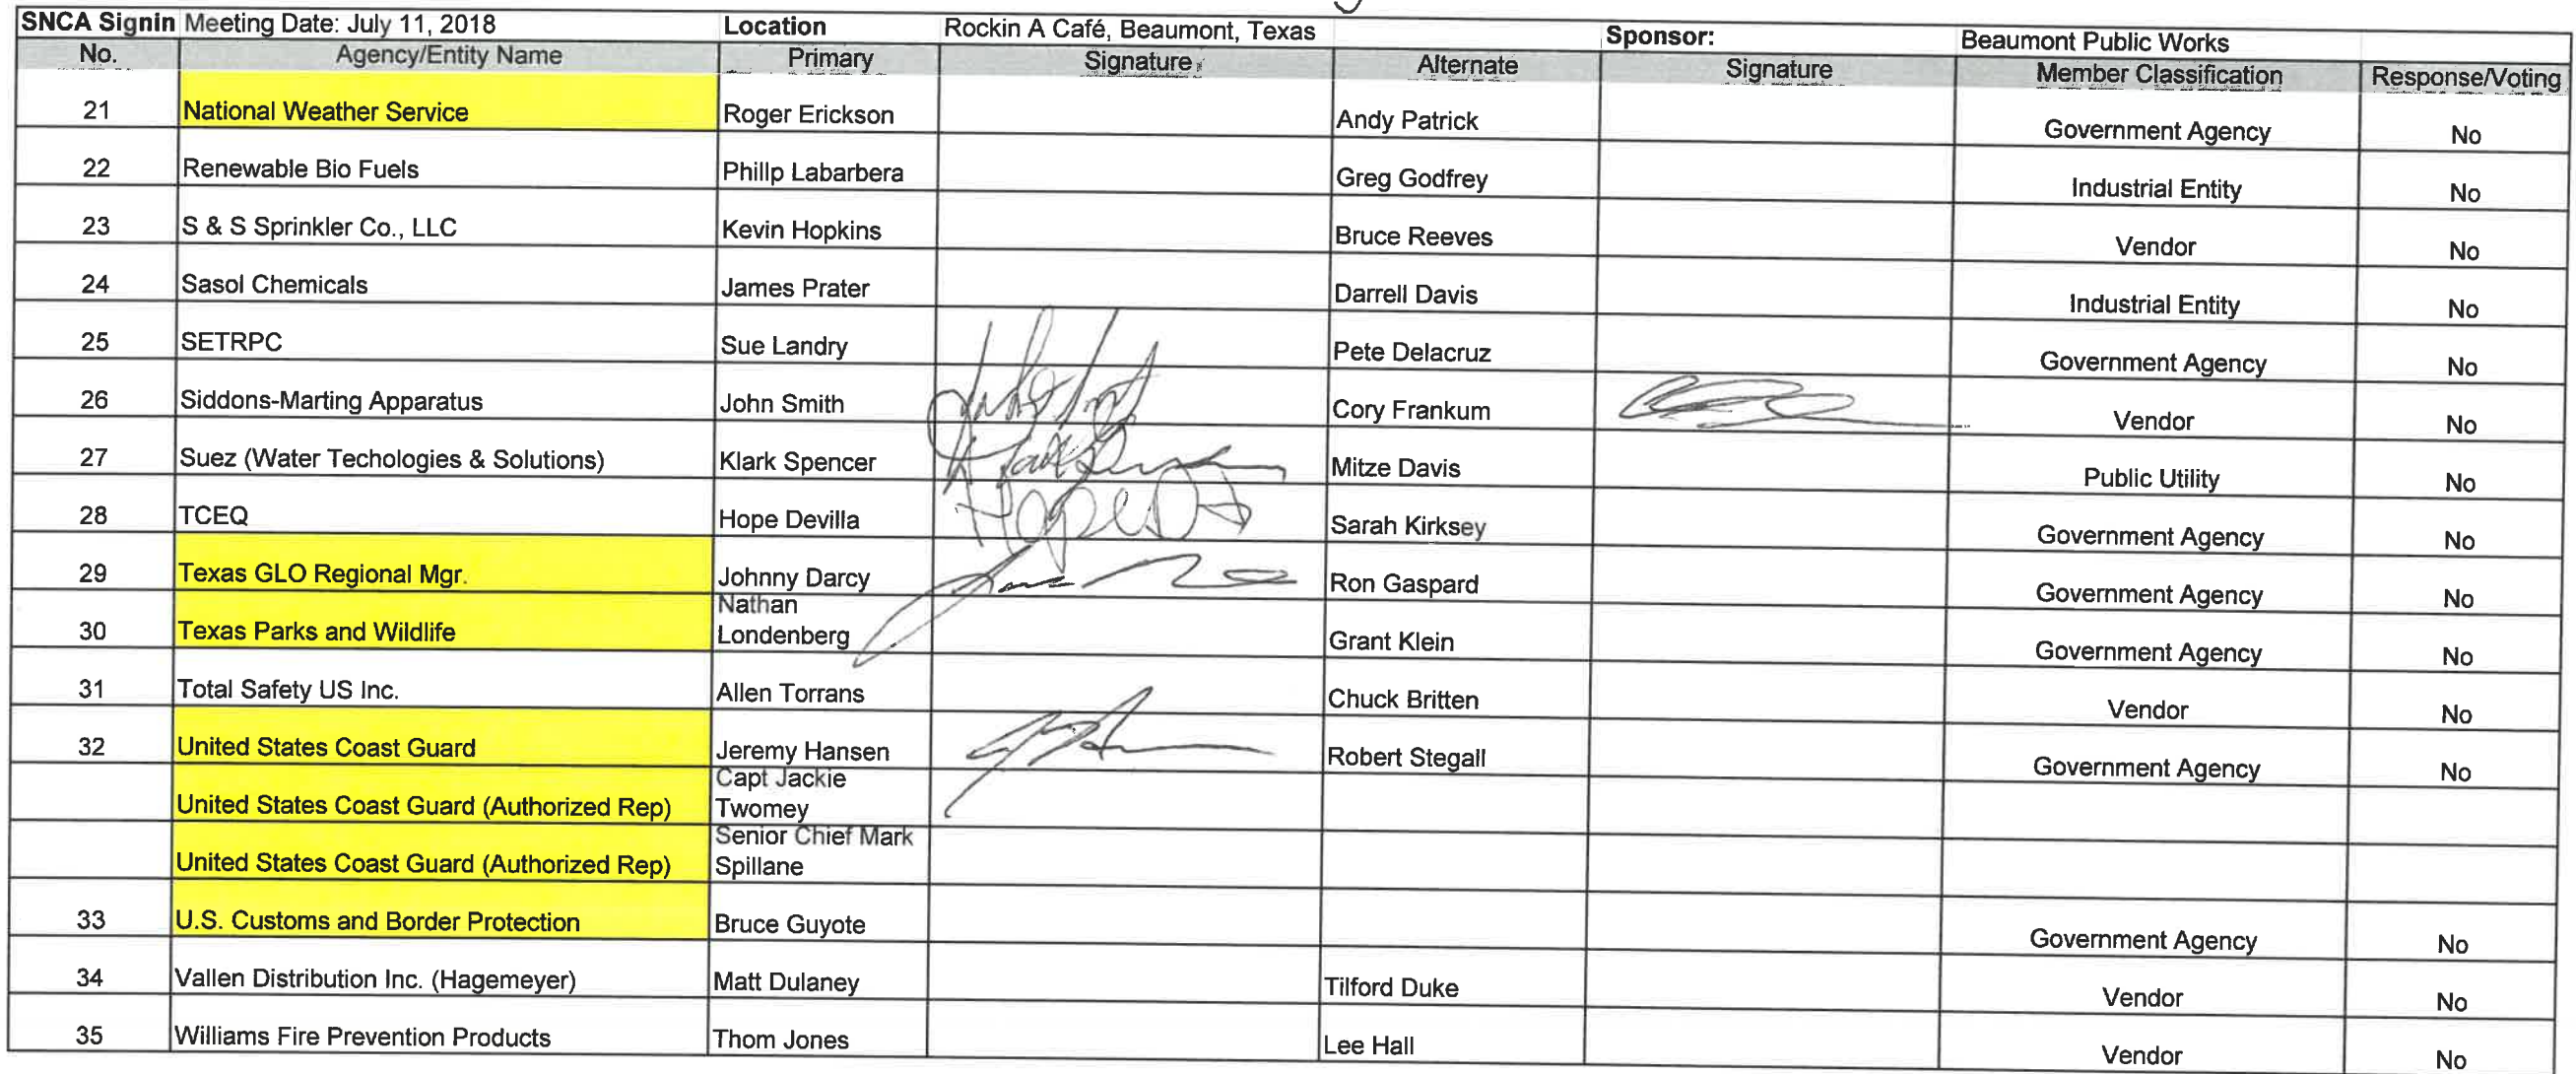 SNCA Signin Meeting Date: July 11, 2018 Location Rockin A Café, Beaumont, Texas Sponsor: Beaumont Public Works
No. Agency/Entity Name Primary Signature Alternate Signature Member Classification Response/Voting
21 National Weather Service Roger Erickson Andy Patrick Government Agency No
22 Renewable Bio Fuels Phillp Labarbera Greg Godfrey Industrial Entity No
23 S & S Sprinkler Co., LLC Kevin Hopkins Bruce Reeves Vendor No
24 Sasol Chemicals James Prater Darrell Davis Industrial Entity No
25 SETRPC Sue Landry Pete Delacruz Government Agency No
26 Siddons-Marting Apparatus John Smith Cory Frankum Vendor No
27 Suez (Water Techologies & Solutions) Klark Spencer Mitze Davis Public Utility No
28 TCEQ Hope Devilla Sarah Kirksey Government Agency No
29 Texas GLO Regional Mgr. Johnny Darcy Ron Gaspard Government Agency No
30 Texas Parks and Wildlife Nathan Londenberg Grant Klein Government Agency No
31 Total Safety US Inc. Allen Torrans Chuck Britten Vendor No
32 United States Coast Guard Jeremy Hansen Robert Stegall Government Agency No
United States Coast Guard (Authorized Rep) Capt Jackie Twomey
United States Coast Guard (Authorized Rep) Senior Chief Mark Spillane
33 U.S. Customs and Border Protection Bruce Guyote Government Agency No
34 Vallen Distribution Inc. (Hagemeyer) Matt Dulaney Tilford Duke Vendor No
35 Williams Fire Prevention Products Thom Jones Lee Hall Vendor No